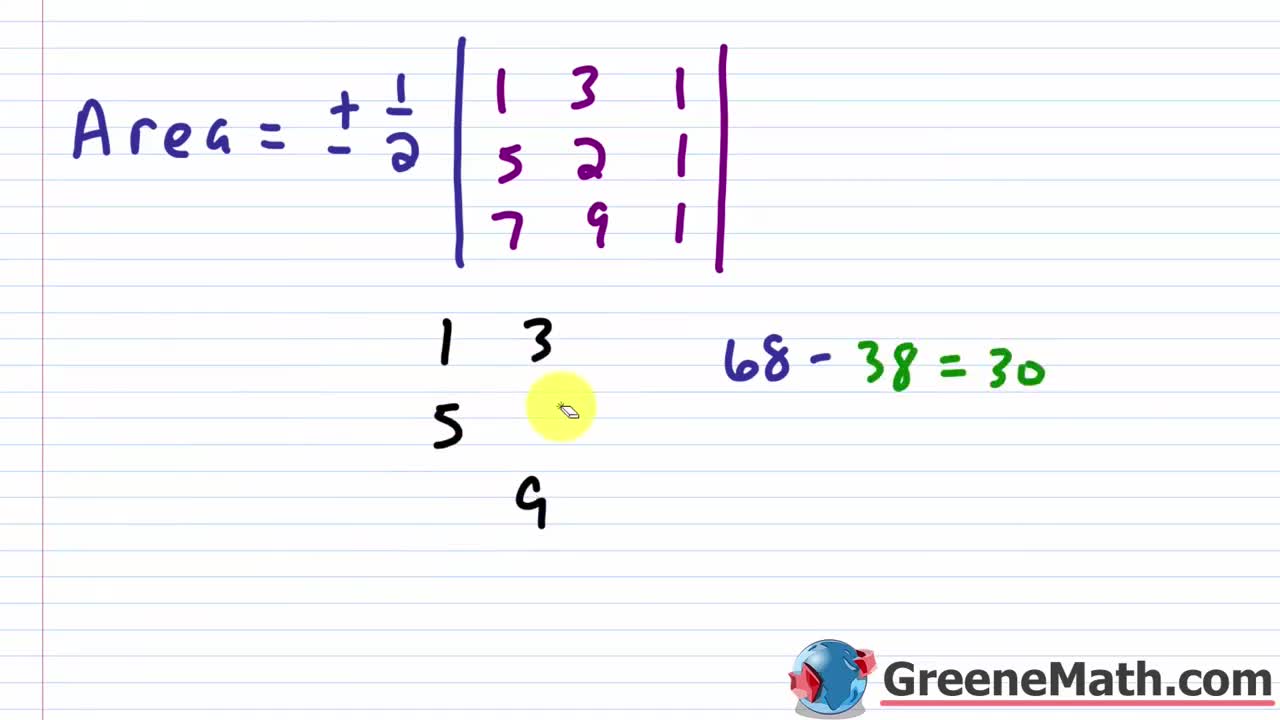 Area = ± 1/2 | 1 3 1 |
| 5 2 1 |
| 7 9 1 |
1 3
68 - 38 = 30
5
9
GreeneMath.com